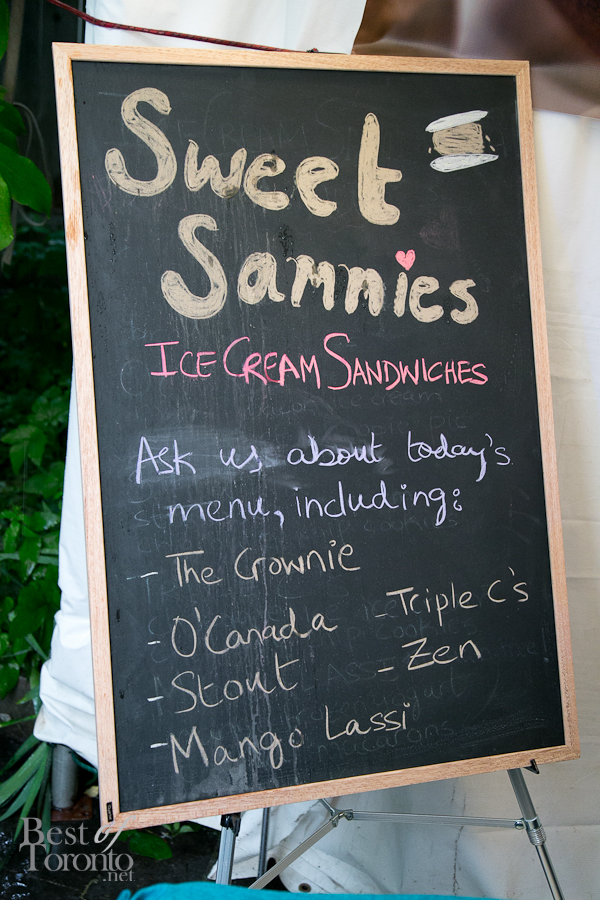 Sweet
Sammies
ICE CREAM SANDWICHES
Ask us about today's
menu, including:
- The Crownie
- O'Canada
- Stout
- Mango Lassi
- Triple C's
- Zen
Best of
Toronto
.net